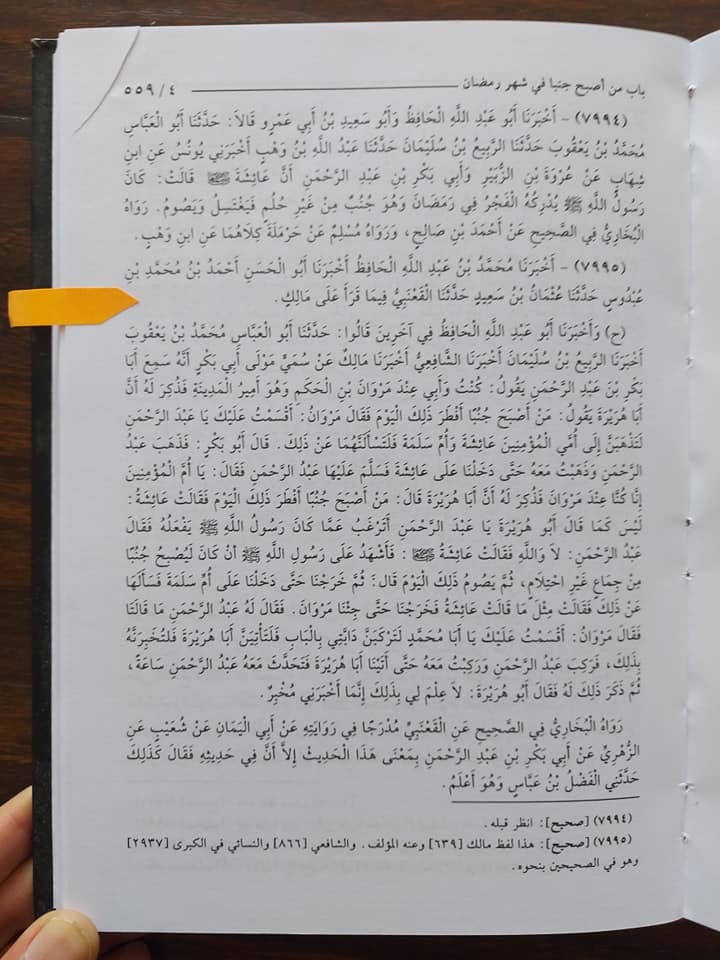 باب من أصبح جنبا في شهر رمضان ٤/ ٥٥٩
(٧٩٩٤) - أَخْبَرَنَا أَبُو عَبْدِ اللَّهِ الْحَافِظُ وَأَبُو سَعِيدِ بْنُ أَبِي عَمْرٍو قَالاَ: حَدَّثَنَا أَبُو الْعَبَّاسِ
مُحَمَّدُ بْنُ يَعْقُوبَ حَدَّثَنَا الرَّبِيعُ بْنُ سُلَيْمَانَ حَدَّثَنَا عَبْدُ اللَّهِ بْنُ وَهْبٍ أَخْبَرَنِي يُونُسُ عَنِ ابْنِ
شِهَابٍ عَنْ عُرْوَةَ بْنِ الزُّبَيْرِ وَأَبِي بَكْرِ بْنِ عَبْدِ الرَّحْمَنِ أَنَّ عَائِشَةَ رضي الله عنها قَالَتْ: كَانَ
رَسُولُ اللَّهِ ﷺ يُدْرِكُهُ الْفَجْرُ فِي رَمَضَانَ وَهُوَ جُنُبٌ مِنْ غَيْرِ حُلُمٍ فَيَغْتَسِلُ وَيَصُومُ. رَوَاهُ
الْبُخَارِيُّ فِي الصَّحِيحِ عَنْ أَحْمَدَ بْنِ صَالِحٍ، وَرَوَاهُ مُسْلِمٌ عَنْ حَرْمَلَةَ كِلاَهُمَا عَنِ ابْنِ وَهْبٍ.
(٧٩٩٥) - أَخْبَرَنَا مُحَمَّدُ بْنُ عَبْدِ اللَّهِ الْحَافِظُ أَخْبَرَنَا أَبُو الْحَسَنِ أَحْمَدُ بْنُ مُحَمَّدِ بْنِ
عَبْدُوسٍ حَدَّثَنَا عُثْمَانُ بْنُ سَعِيدٍ حَدَّثَنَا الْقَعْنَبِيُّ فِيمَا قَرَأَ عَلَى مَالِكٍ.
(ح) وَأَخْبَرَنَا أَبُو عَبْدِ اللَّهِ الْحَافِظُ فِي آخَرِينَ قَالُوا: حَدَّثَنَا أَبُو الْعَبَّاسِ مُحَمَّدُ بْنُ يَعْقُوبَ
أَخْبَرَنَا الرَّبِيعُ بْنُ سُلَيْمَانَ أَخْبَرَنَا الشَّافِعِيُّ أَخْبَرَنَا مَالِكٌ عَنْ سُمَيٍّ مَوْلَى أَبِي بَكْرٍ أَنَّهُ سَمِعَ أَبَا
بَكْرِ بْنَ عَبْدِ الرَّحْمَنِ يَقُولُ: كُنْتُ وَأَبِي عِنْدَ مَرْوَانَ بْنِ الْحَكَمِ وَهُوَ أَمِيرُ الْمَدِينَةِ فَذُكِرَ لَهُ أَنَّ
أَبَا هُرَيْرَةَ يَقُولُ: مَنْ أَصْبَحَ جُنُبًا أَفْطَرَ ذَلِكَ الْيَوْمَ فَقَالَ مَرْوَانُ: أَقْسَمْتُ عَلَيْكَ يَا عَبْدَ الرَّحْمَنِ
لَتَذْهَبَنَّ إِلَى أُمَّيِ الْمُؤْمِنِينَ عَائِشَةَ وَأُمِّ سَلَمَةَ فَلَتَسْأَلَنَّهُمَا عَنْ ذَلِكَ. قَالَ أَبُو بَكْرٍ: فَذَهَبَ عَبْدُ
الرَّحْمَنِ وَذَهَبْتُ مَعَهُ حَتَّى دَخَلْنَا عَلَى عَائِشَةَ فَسَلَّمَ عَلَيْهَا عَبْدُ الرَّحْمَنِ فَقَالَ: يَا أُمَّ الْمُؤْمِنِينَ
إِنَّا كُنَّا عِنْدَ مَرْوَانَ فَذُكِرَ لَهُ أَنَّ أَبَا هُرَيْرَةَ قَالَ: مَنْ أَصْبَحَ جُنُبًا أَفْطَرَ ذَلِكَ الْيَوْمَ فَقَالَتْ عَائِشَةُ:
لَيْسَ كَمَا قَالَ أَبُو هُرَيْرَةَ يَا عَبْدَ الرَّحْمَنِ أَتَرْغَبُ عَمَّا كَانَ رَسُولُ اللَّهِ ﷺ يَفْعَلُهُ فَقَالَ
عَبْدُ الرَّحْمَنِ: لاَ وَاللَّهِ فَقَالَتْ عَائِشَةُ رضي الله عنها: فَأَشْهَدُ عَلَى رَسُولِ اللَّهِ ﷺ أَنْ كَانَ لَيُصْبِحُ جُنُبًا
مِنْ جِمَاعٍ غَيْرِ احْتِلاَمٍ، ثُمَّ يَصُومُ ذَلِكَ الْيَوْمَ قَالَ: ثُمَّ خَرَجْنَا حَتَّى دَخَلْنَا عَلَى أُمِّ سَلَمَةَ فَسَأَلَهَا
عَنْ ذَلِكَ فَقَالَتْ مِثْلَ مَا قَالَتْ عَائِشَةُ فَخَرَجْنَا حَتَّى جِئْنَا مَرْوَانَ. فَقَالَ لَهُ عَبْدُ الرَّحْمَنِ مَا قَالَتَا
فَقَالَ مَرْوَانُ: أَقْسَمْتُ عَلَيْكَ يَا أَبَا مُحَمَّدٍ لَتَرْكَبَنَّ دَابَّتِي بِالْبَابِ فَلَتَأْتِيَنَّ أَبَا هُرَيْرَةَ فَلَتُخْبِرَنَّهُ
بِذَلِكَ، فَرَكِبَ عَبْدُ الرَّحْمَنِ وَرَكِبْتُ مَعَهُ حَتَّى أَتَيْنَا أَبَا هُرَيْرَةَ فَتَحَدَّثَ مَعَهُ عَبْدُ الرَّحْمَنِ سَاعَةً،
ثُمَّ ذَكَرَ ذَلِكَ لَهُ فَقَالَ أَبُو هُرَيْرَةَ: لاَ عِلْمَ لِي بِذَلِكَ إِنَّمَا أَخْبَرَنِي مُخْبِرٌ.
رَوَاهُ الْبُخَارِيُّ فِي الصَّحِيحِ عَنِ الْقَعْنَبِيِّ مُدْرَجًا فِي رَوَايَتِهِ عَنْ أَبِي الْيَمَانِ عَنْ شُعَيْبٍ عَنِ
الزُّهْرِيِّ عَنْ أَبِي بَكْرِ بْنِ عَبْدِ الرَّحْمَنِ بِمَعْنَى هَذَا الْحَدِيثِ إِلاَّ أَنَّ فِي حَدِيثِهِ فَقَالَ كَذَلِكَ
حَدَّثَنِي الْفَضْلُ بْنُ عَبَّاسٍ وَهُوَ أَعْلَمُ.
(٧٩٩٤) [صحيح]: انظر قبله.
(٧٩٩٥) [صحيح]: هذا لفظ مالك [٦٣٩] وعنه المؤلف. والشافعي [٨٦٦] والنسائي في الكبرى [٢٩٣٧]
وهو في الصحيحين بنحوه.